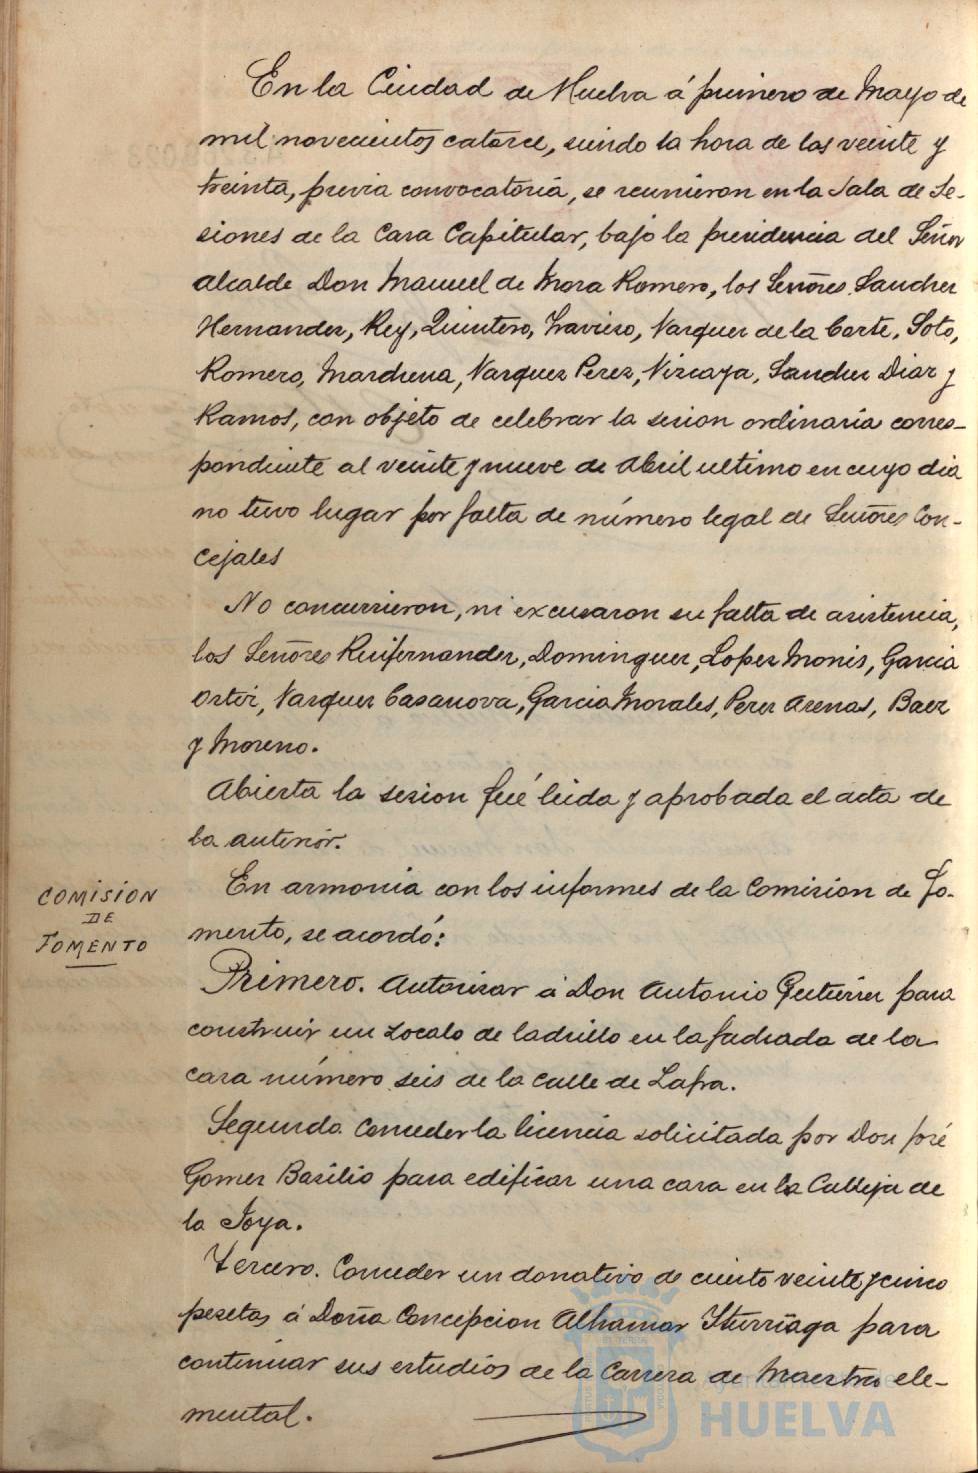 En la Ciudad de Huelva á primero de Mayo de
mil novecientos catorce, siendo la hora de las veinte y
treinta, previa convocatoria, se reunieron en la Sala de Se-
siones de la Casa Capitular, bajo la presidencia del Señor
Alcalde Don Manuel de Mora Romero, los Señores Sanchez
Hernandez, Rey, Quintero, Travieso, Vazquez de la Corte, Soto,
Romero, Marchena, Vazquez Perez, Vizcaya, Sanchez Diaz y
Ramos, con objeto de celebrar la sesion ordinaria corres-
pondiente al veinte y nueve de Abril ultimo en cuyo dia
no tuvo lugar por falta de número legal de Señores Con-
cejales
No concurrieron, ni excusaron su falta de asistencia,
los Señores Ruifernandez, Dominguez, Lopez Monis, Garcia
Ortiz, Vazquez Casanova, Garcia Morales, Perez Arenas, Baez
y Moreno.
Abierta la sesion fué leida y aprobada el acta de
la anterior.
COMISION
DE
FOMENTO
En armonia con los informes de la Comision de Fo-
mento, se acordó:
Primero. Autorizar á Don Antonio Gutierrez para
construir un zocalo de ladrillo en la fachada de la
casa número seis de la calle de Zafra.
Segundo. Conceder la licencia solicitada por Don José
Gomez Basilio para edificar una casa en la Calleja de
la Joya.
Tercero. Conceder un donativo de ciento veinte y cinco
pesetas á Doña Concepcion Alhamar Yturriaga para
continuar sus estudios de la Carrera de Maestra ele-
mental.
Ayuntamiento de
HUELVA